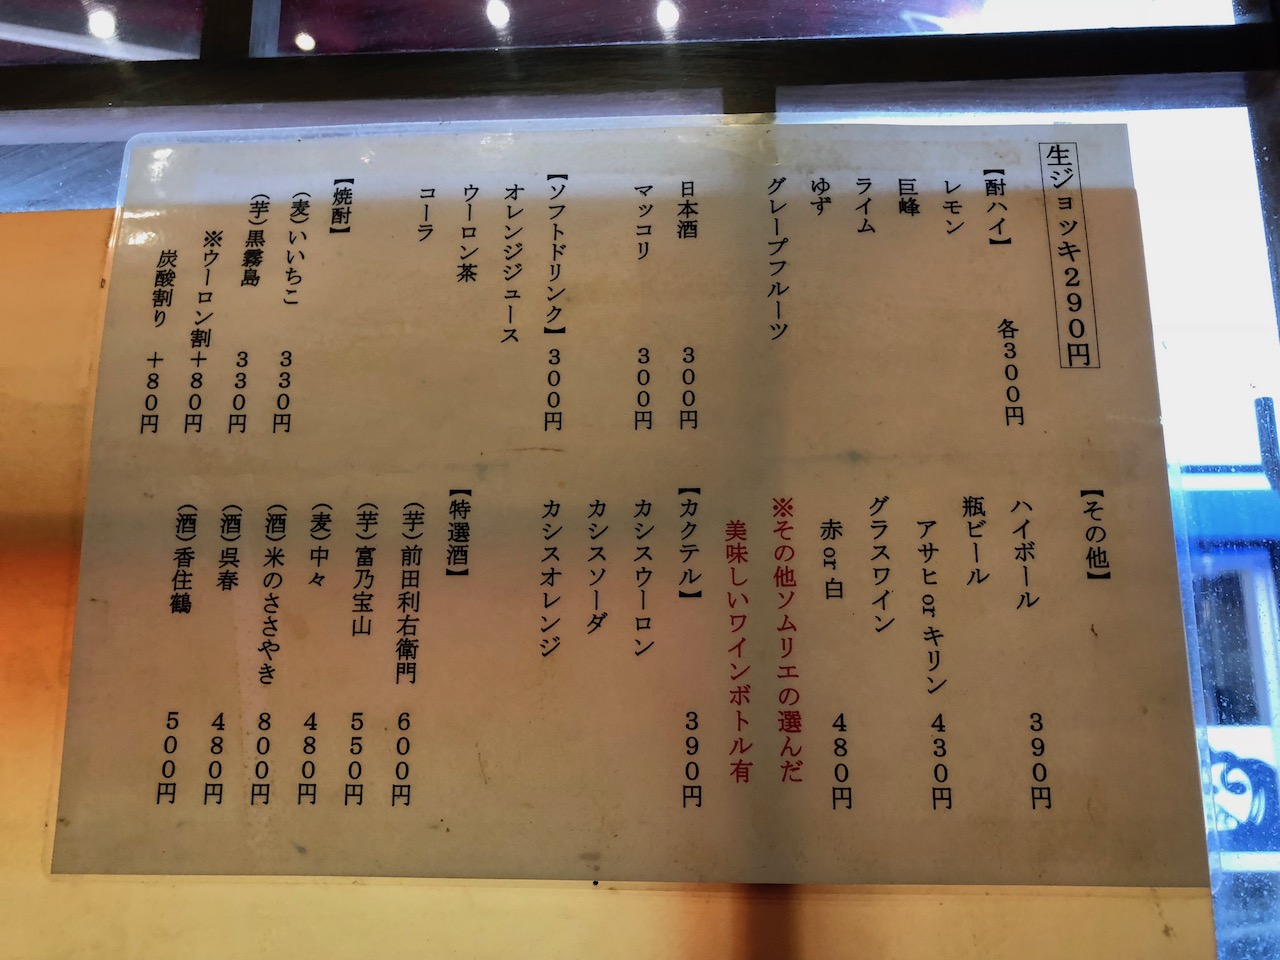 生ジョッキ290円
【酎ハイ】 各300円
レモン
巨峰
ライム
ゆず
グレープフルーツ
日本酒 300円
マッコリ 300円
【ソフトドリンク】 300円
オレンジジュース
ウーロン茶
コーラ
【焼酎】
(麦)いいちこ 330円
(芋)黒霧島 330円
※ウーロン割 +80円
炭酸割り +80円
【その他】
ハイボール 390円
瓶ビール
アサヒ or キリン 430円
グラスワイン
赤 or 白 480円
※その他ソムリエの選んだ
美味しいワインボトル有
【カクテル】 390円
カシスウーロン
カシスソーダ
カシスオレンジ
【特選酒】
(芋)前田利右衛門 600円
(芋)富乃宝山 550円
(麦)中々 480円
(酒)米のささやき 800円
(酒)呉春 480円
(酒)香住鶴 500円